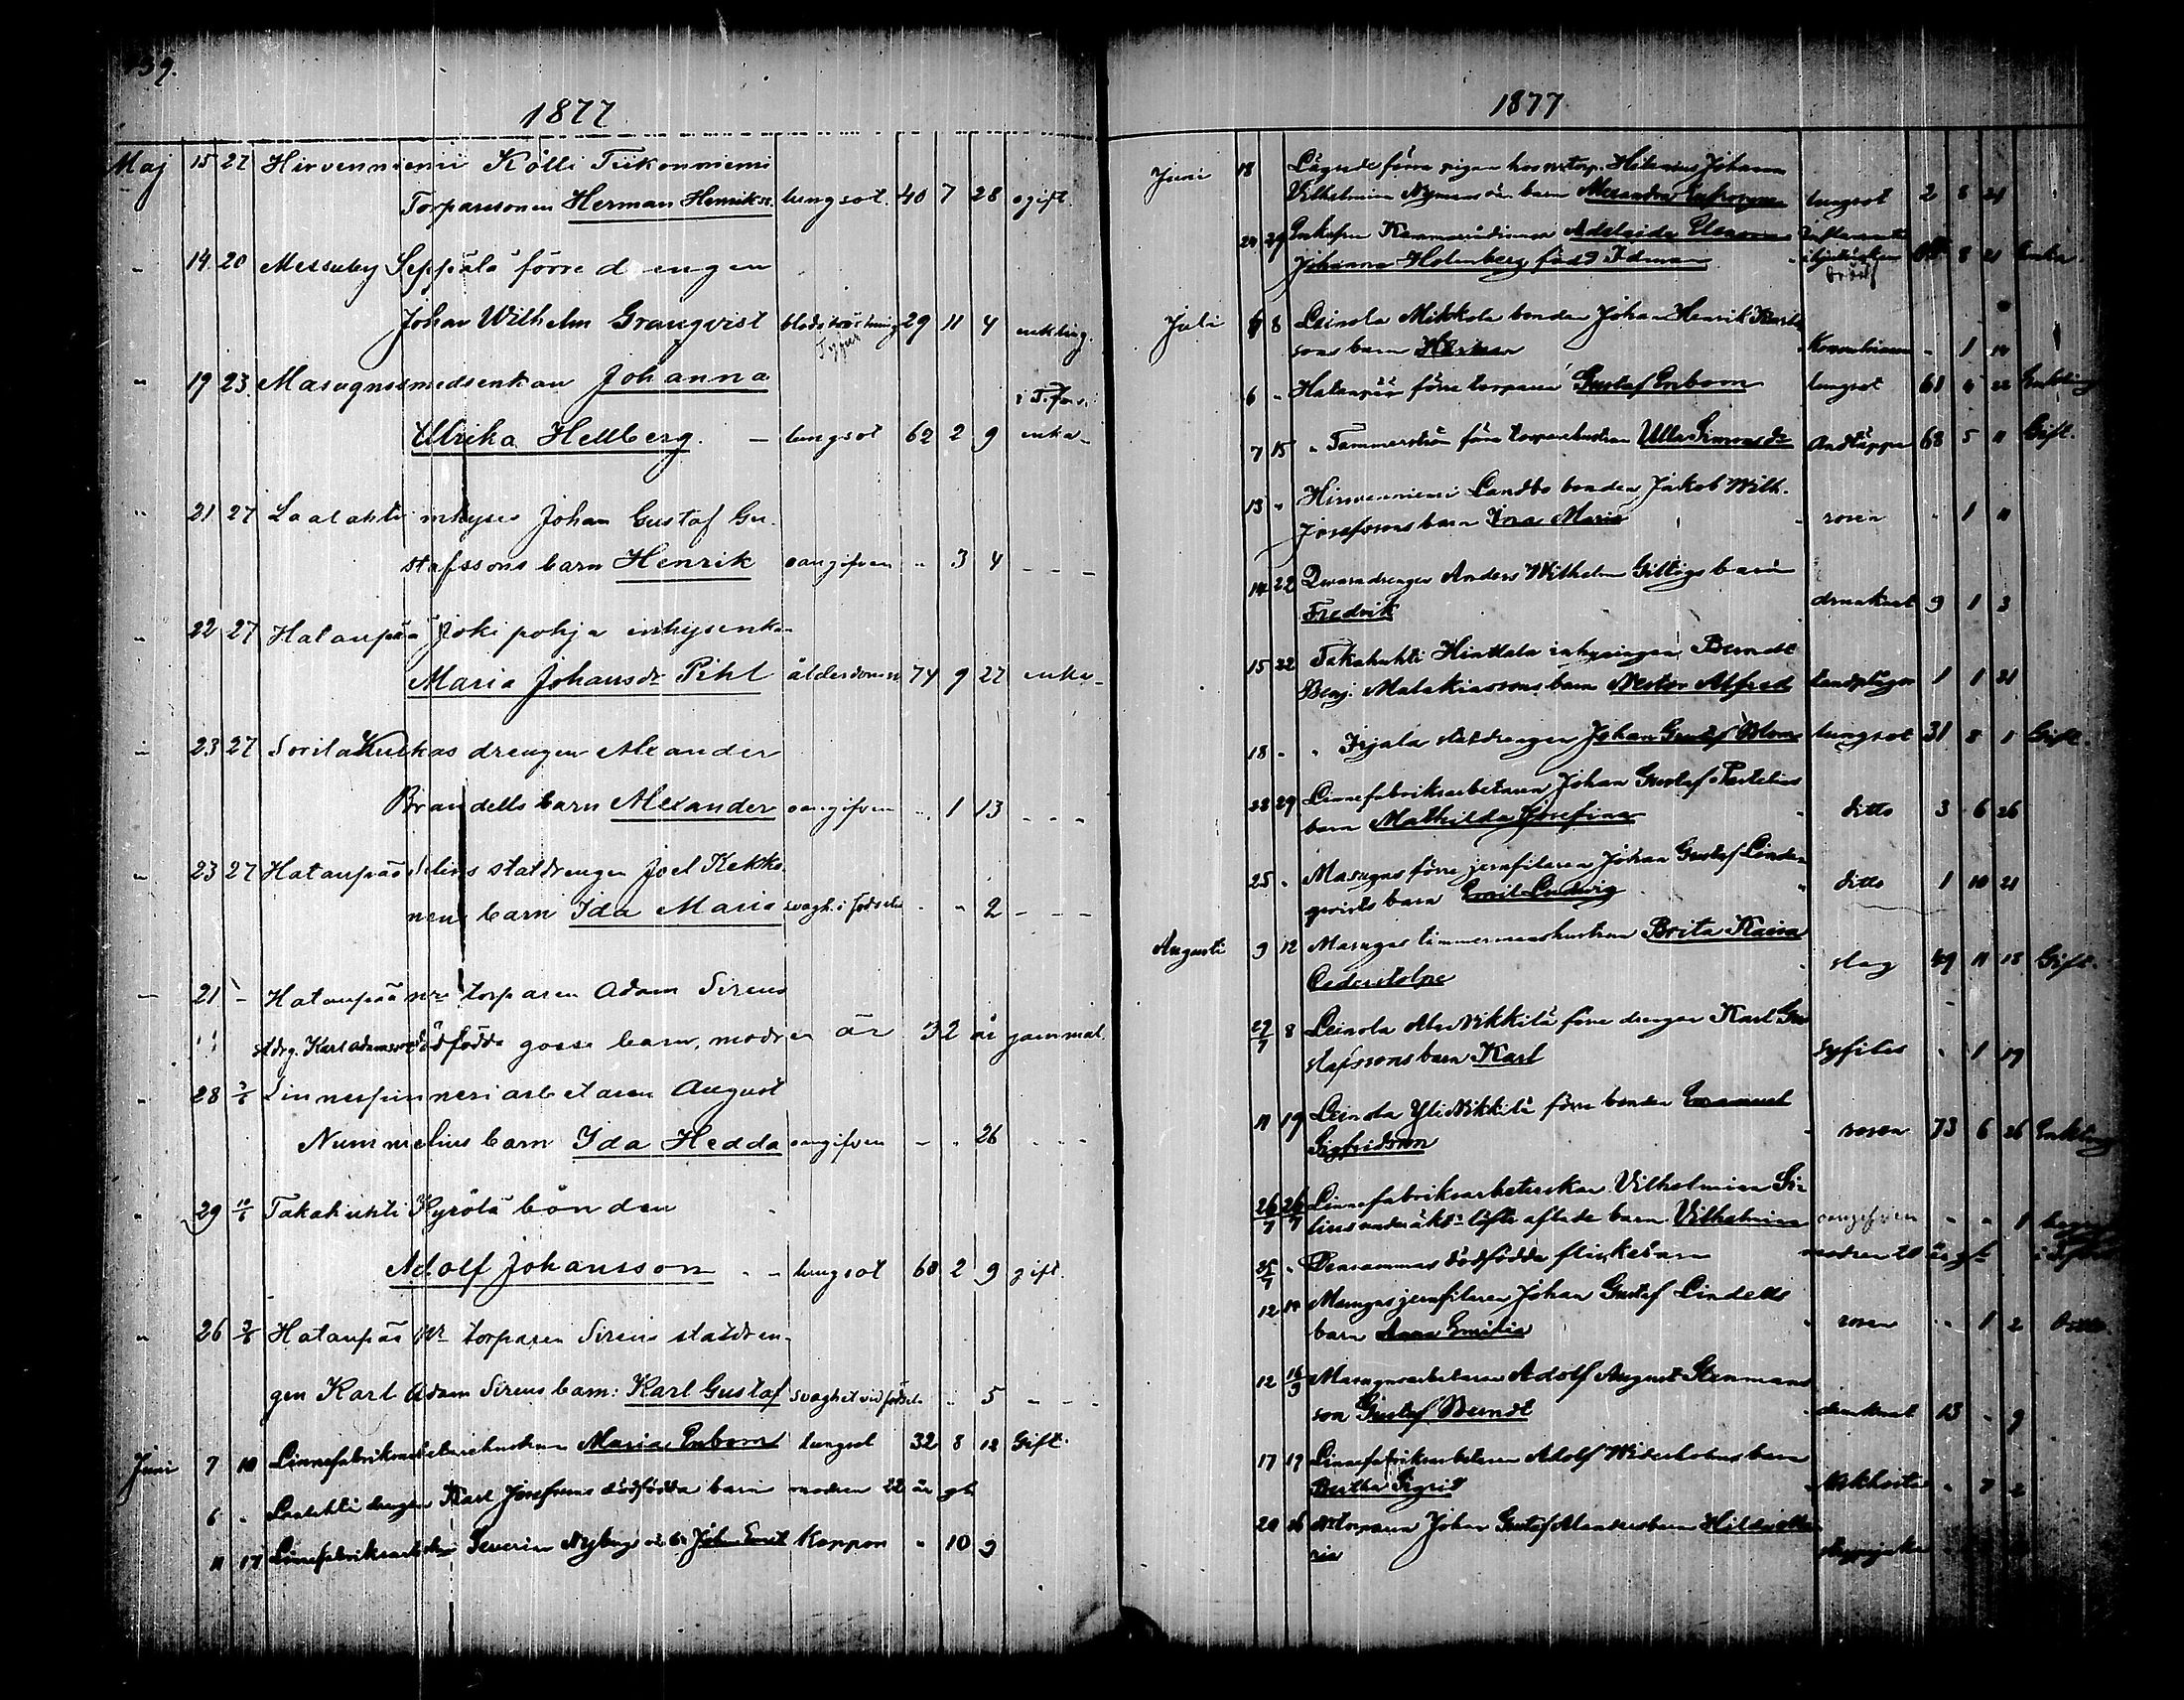 39.
1877
Maj 15 27 Hirvenniemi Kölli Tiikonniemi
Torparesonen Herman Henrikss. lungsot. 40 7 28 ogift.
" 14 20 Messuby Seppälä förre drengen
Johan Wilhelm Granqvist blodstörtning 29 11 4 enkling.
Tyfus
" 19 23 Masugnssmedsenkan Johanna
i T:fors.
Ulrika Hellberg. — lungsot 62 2 9 enka
" 21 27 Laalahti inhyses Johan Gustaf Gu-
stafssons barn Henrik oangifven " 3 4 - - -
" 22 27 Hatanpää Jokipohja inhysenkan
Maria Johansdr Pihl ålderdom 74 9 27 enka
" 23 27 Sorila Kurkas drengen Alexander
Brandells barn Alexander oangifven " 1 13 - - -
" 23 27 Hatanpää statdrengen Joel Kekko-
nens barn Ida Maria svagh. i födseln " " 2 - - -
" 21 " Hatanpää torparen Adam Sirens
stdrg. Karl Adamssons dödfödda gosse barn, modren är 32 år gammal.
" 28 3/6 Linnespinneriarbetaren August
Nummelins barn Ida Hedda oangifven - " 26 - - -
" 29 10/6 Takahuhti Kyrölä bonden
Adolf Johansson - - lungsot 60 2 9 gift.
" 26 3/6 Hatanpää torparen Sirens statdren-
gen Karl Adam Sirens barn: Karl Gustaf svaghet vid födseln " 5 - - -
Juni 7 10 Linnefabriksarbetarehustrun Maria Enbom lungsot 32 8 12 Gift.
6 " Laalahti drengen Karl Josefssons dödfödda barn modren 22 år gl.
11 17 Linnefabriksarb. Severin Nybergs Johan Ernst Koppor " 10 9
1877
Juni 18 förre pigan hos Johanna
Vilhelmina Nymans oä barn Alexandra lungsot 2 8 21
24 29 Enkefru Adelaide Eleonora
Johanna Holmberg född Idman 8 21 Enka
Juli 6 8 Leinola Mikkola bonden Johan Henrik Karls-
sons barn Herman " 1
6 " Hatanpää förre torparen Gustaf Enbom lungsot 61 4 22 Enkling
7 15 " Tammerström förre torparehustrun Ulla Simonsdr Andtäppa 68 5 11 Gift.
13 " Hirvenniemi Landbo bonden Jakob Wilh.
Josefssons barn Ina Maria rosen " 1 11
14 22 Qvarndrengen Anders Wilhelm barn
Fredrik drunknat 9 1 3
15 22 Takahuhti Hinttala inhysingen Berndt
Benj. Malakiassons barn Nestor Alfred tandplågor 1 1 21
18 " " Irjala statdrengen Johan Gustaf Blom lungsot 31 8 1 Gift.
22 29 Linnefabriksarbetaren Johan Gustaf
barn Mathilda Josefina ditto 3 6 26
25 " Masugns förre jernfilaren Johan Gustaf Linden-
qvists barn Emil Ludvig ditto 1 10 21
Augusti 9 12 Masugns timmermanshustrun Brita Kaisa
Cederstolpe slag 49 11 18 Gift.
27/7 8 Leinola Ala Nikkilä förre drengen Karl Gu-
stafssons barn Karl syfilis " 1 19
11 19 Leinola Yli Nikkilä förre bonden Emanuel
Sigfridsson rosen 73 6 26 Enkling
26/7 26/7 Linnefabriksarbeterskan Vilhelmina
under äkts löfte aflade barn Vilhelmina oangifven - - 1
25/7 " Densammas dödfödda flickebarn modren 20 år gl.
12 19 Masugns jernfilaren Johan Gustaf Lindells
barn Anna Emilia rosen " 1 2
12 16/9 Masugnsarbetaren Adolf August Stenmans
son Gustaf Berndt drunknat 13 - 9
17 19 Linnefabriksarbetaren Adolf Widerholms barn
Bertha Sigrid kikhosta " 7 2
20 26 torparen Johan Gustaf barn Hilda Ma-
ria